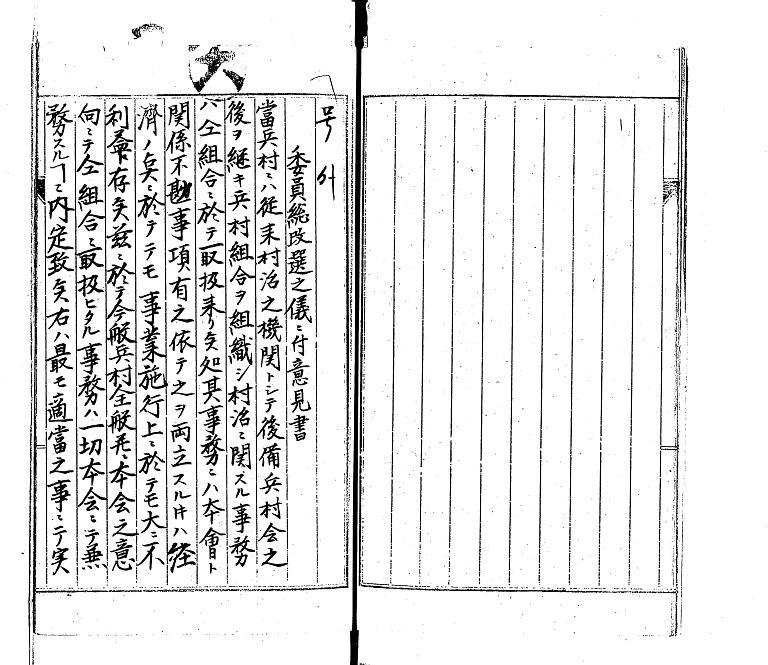 号外
委員総改選之儀ニ付意見書
當兵村ニハ従来村治之機関トシテ後備兵村会之
後ヲ継キ兵村組合ヲ組織シ村治ニ関スル事務
ハ仝組合ニ於テ取扱来リ矣処其事務ニハ本會ト
関係不尠事項有之依テ之ヲ両立スル時ハ経
済ノ点ニ於テモ事業施行上ニ於テモ大ニ不
利益ト存矣茲ニ於テ今般兵村全般并ニ本会之意
向ニテ仝組合ニ取扱ヒタル事務ハ一切本会ニテ兼
務スルヿニ内定致矣右ハ最モ適當之事ニテ実